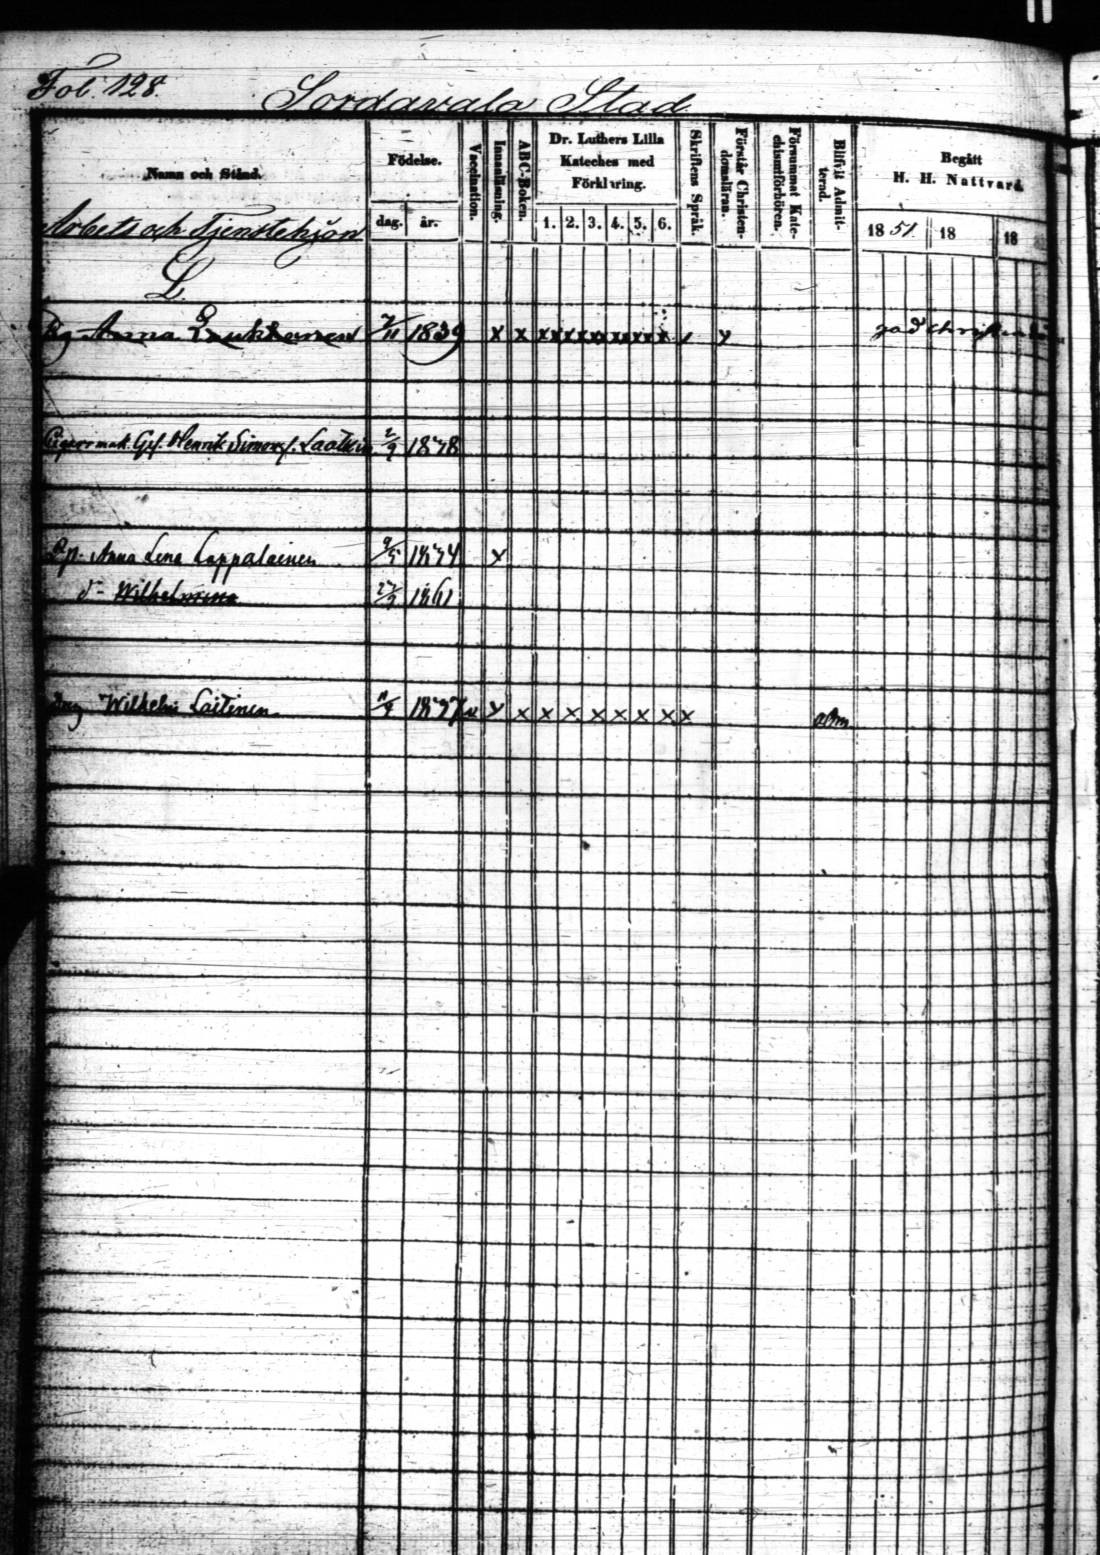 Fol. 128
Sordavala Stad
Namn och Stånd.
Födelse.
dag.
år.
Vaccination.
Innanläsning.
ABC-Boken.
Dr. Luthers Lilla
Kateches med
Förklaring.
1. 2. 3. 4. 5. 6.
Skriftens Språk.
Förstår Christen-
domsläran.
Försummat Kate-
chismiförhören.
Blifvit Admit-
terad.
Begått
H. H. Nattvard
18 51 18 18
Arbets och Tjenstehjon
L.
Anna 1839 x x x x x x x x x x x
Gef. Henrik Simonss. 2/9 18
Anna Lena Lappalainen 9/5 18 x
d- Wilhelmina 27/ 1861
Wilhelm Laitinen 11/9 18 x x x x x x x x x adm